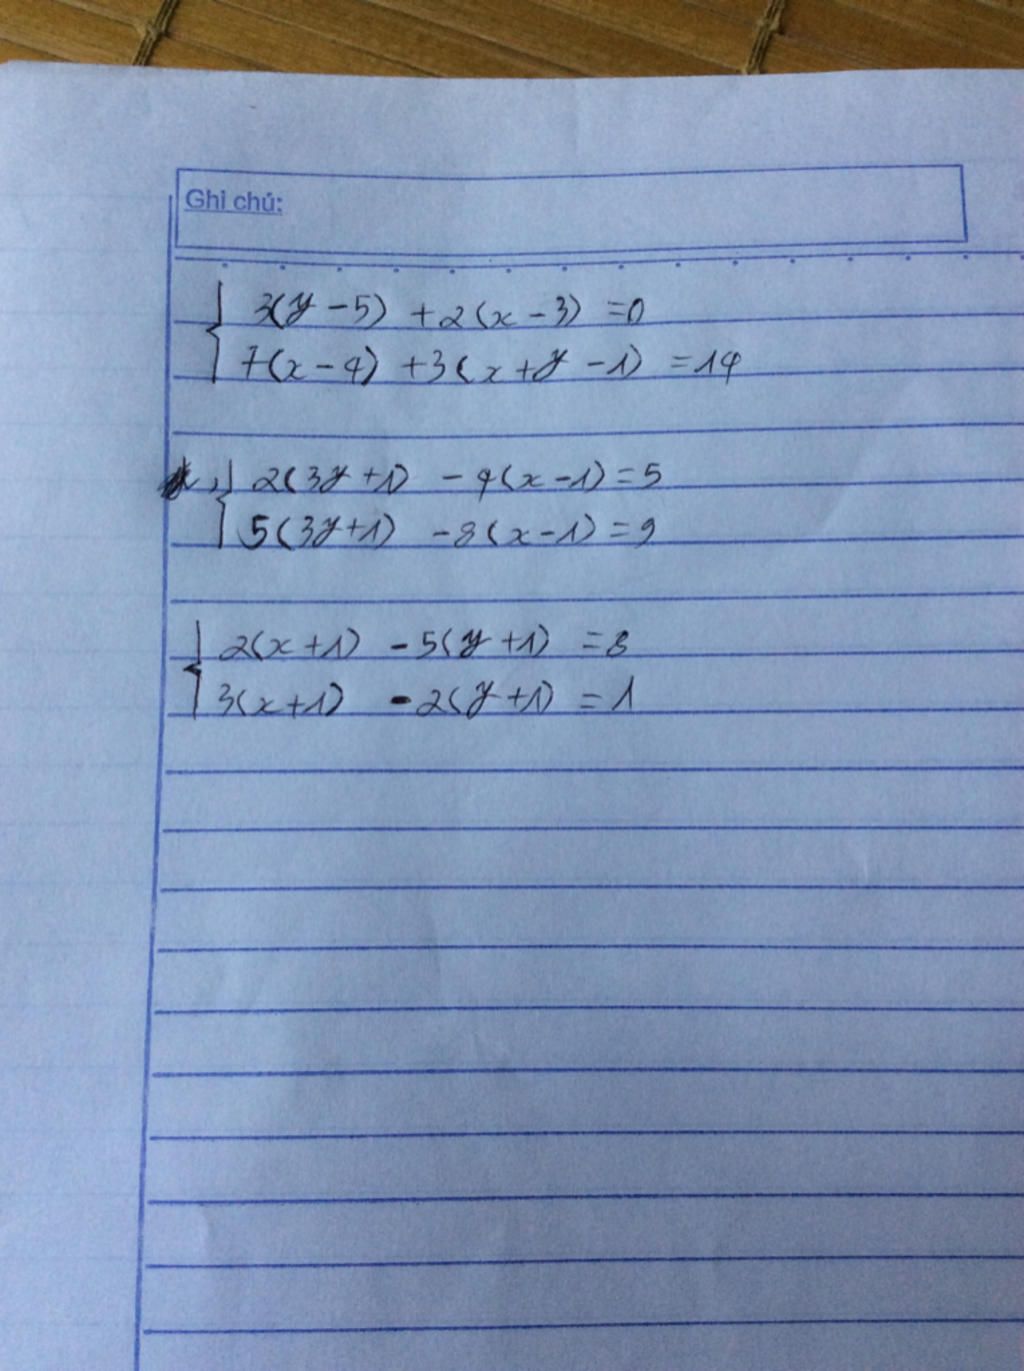 Ghi chú:
3(y-5) +2(x-3) =0
7(x-4) +3(x+y-1) =14
2(3y+1) -4(x-1)=5
5(3y+1) -8(x-1)=9
2(x+1) -5(y+1) =8
3(x+1) -2(y+1) =1